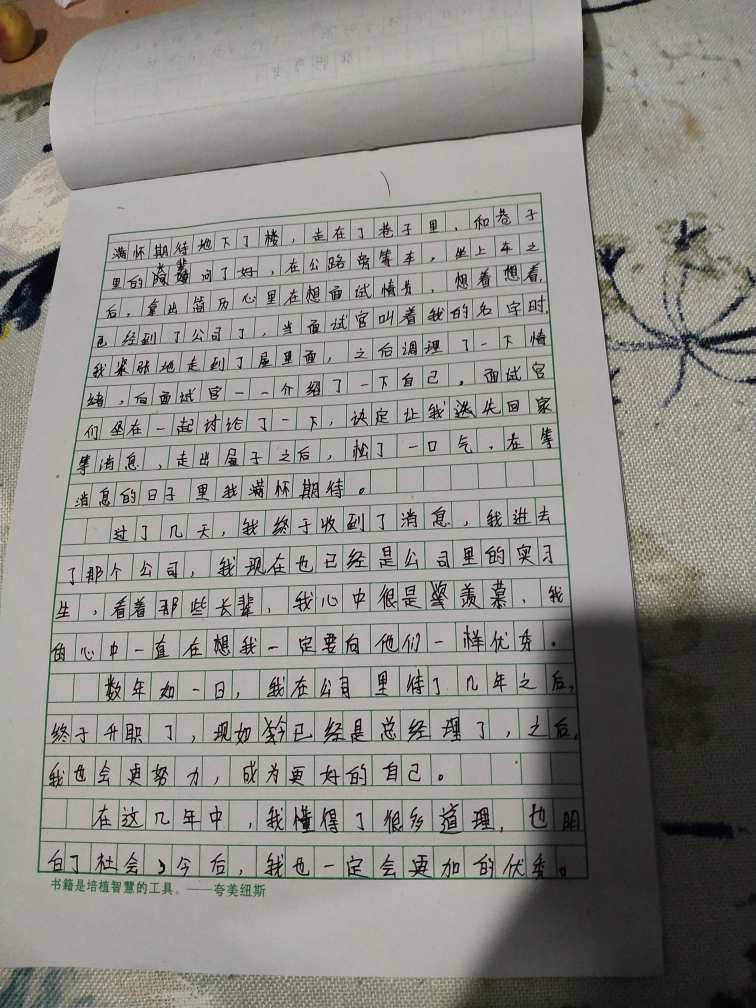 满怀期待地下了楼，走在了巷子里，和巷子
里的长辈问了好，在公路旁等车，坐上车之
后，拿出简历心里在想面试情节，想着想着，
已经到了公司了，当面试官叫着我的名字时，
我紧张地走到了屋里面，之后调理了一下情
绪，向面试官一一介绍了一下自己，面试官
们坐在一起讨论了一下，决定让我先回家
等消息，走出屋子之后，松了一口气，在等
消息的日子里我满怀期待。
过了几天，我终于收到了消息，我进去
了那个公司，我现在也已经是公司里的实习
生，看着那些长辈，我心中很是羡慕，我
的心中一直在想我一定要向他们一样优秀。
数年如一日，我在公司里待了几年之后，
终于升职了，现如今已经是总经理了，之后，
我也会更努力，成为更好的自己。
在这几年中，我懂得了很多道理，也明
白了社会，今后，我也一定会更加的优秀。
书籍是培植智慧的工具。——夸美纽斯